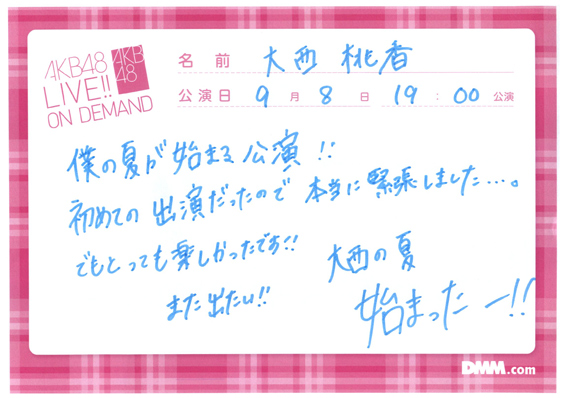 AKB48
LIVE!!
ON DEMAND
AKB
48
名前 大西 桃香
公演日 9月8日 19:00公演
僕の夏が始まる公演!!
初めての出演だったので本当に緊張しました…。
でもとっても楽しかったです!!
また出たい!!
大西の夏
始まったー!!
DMM.com